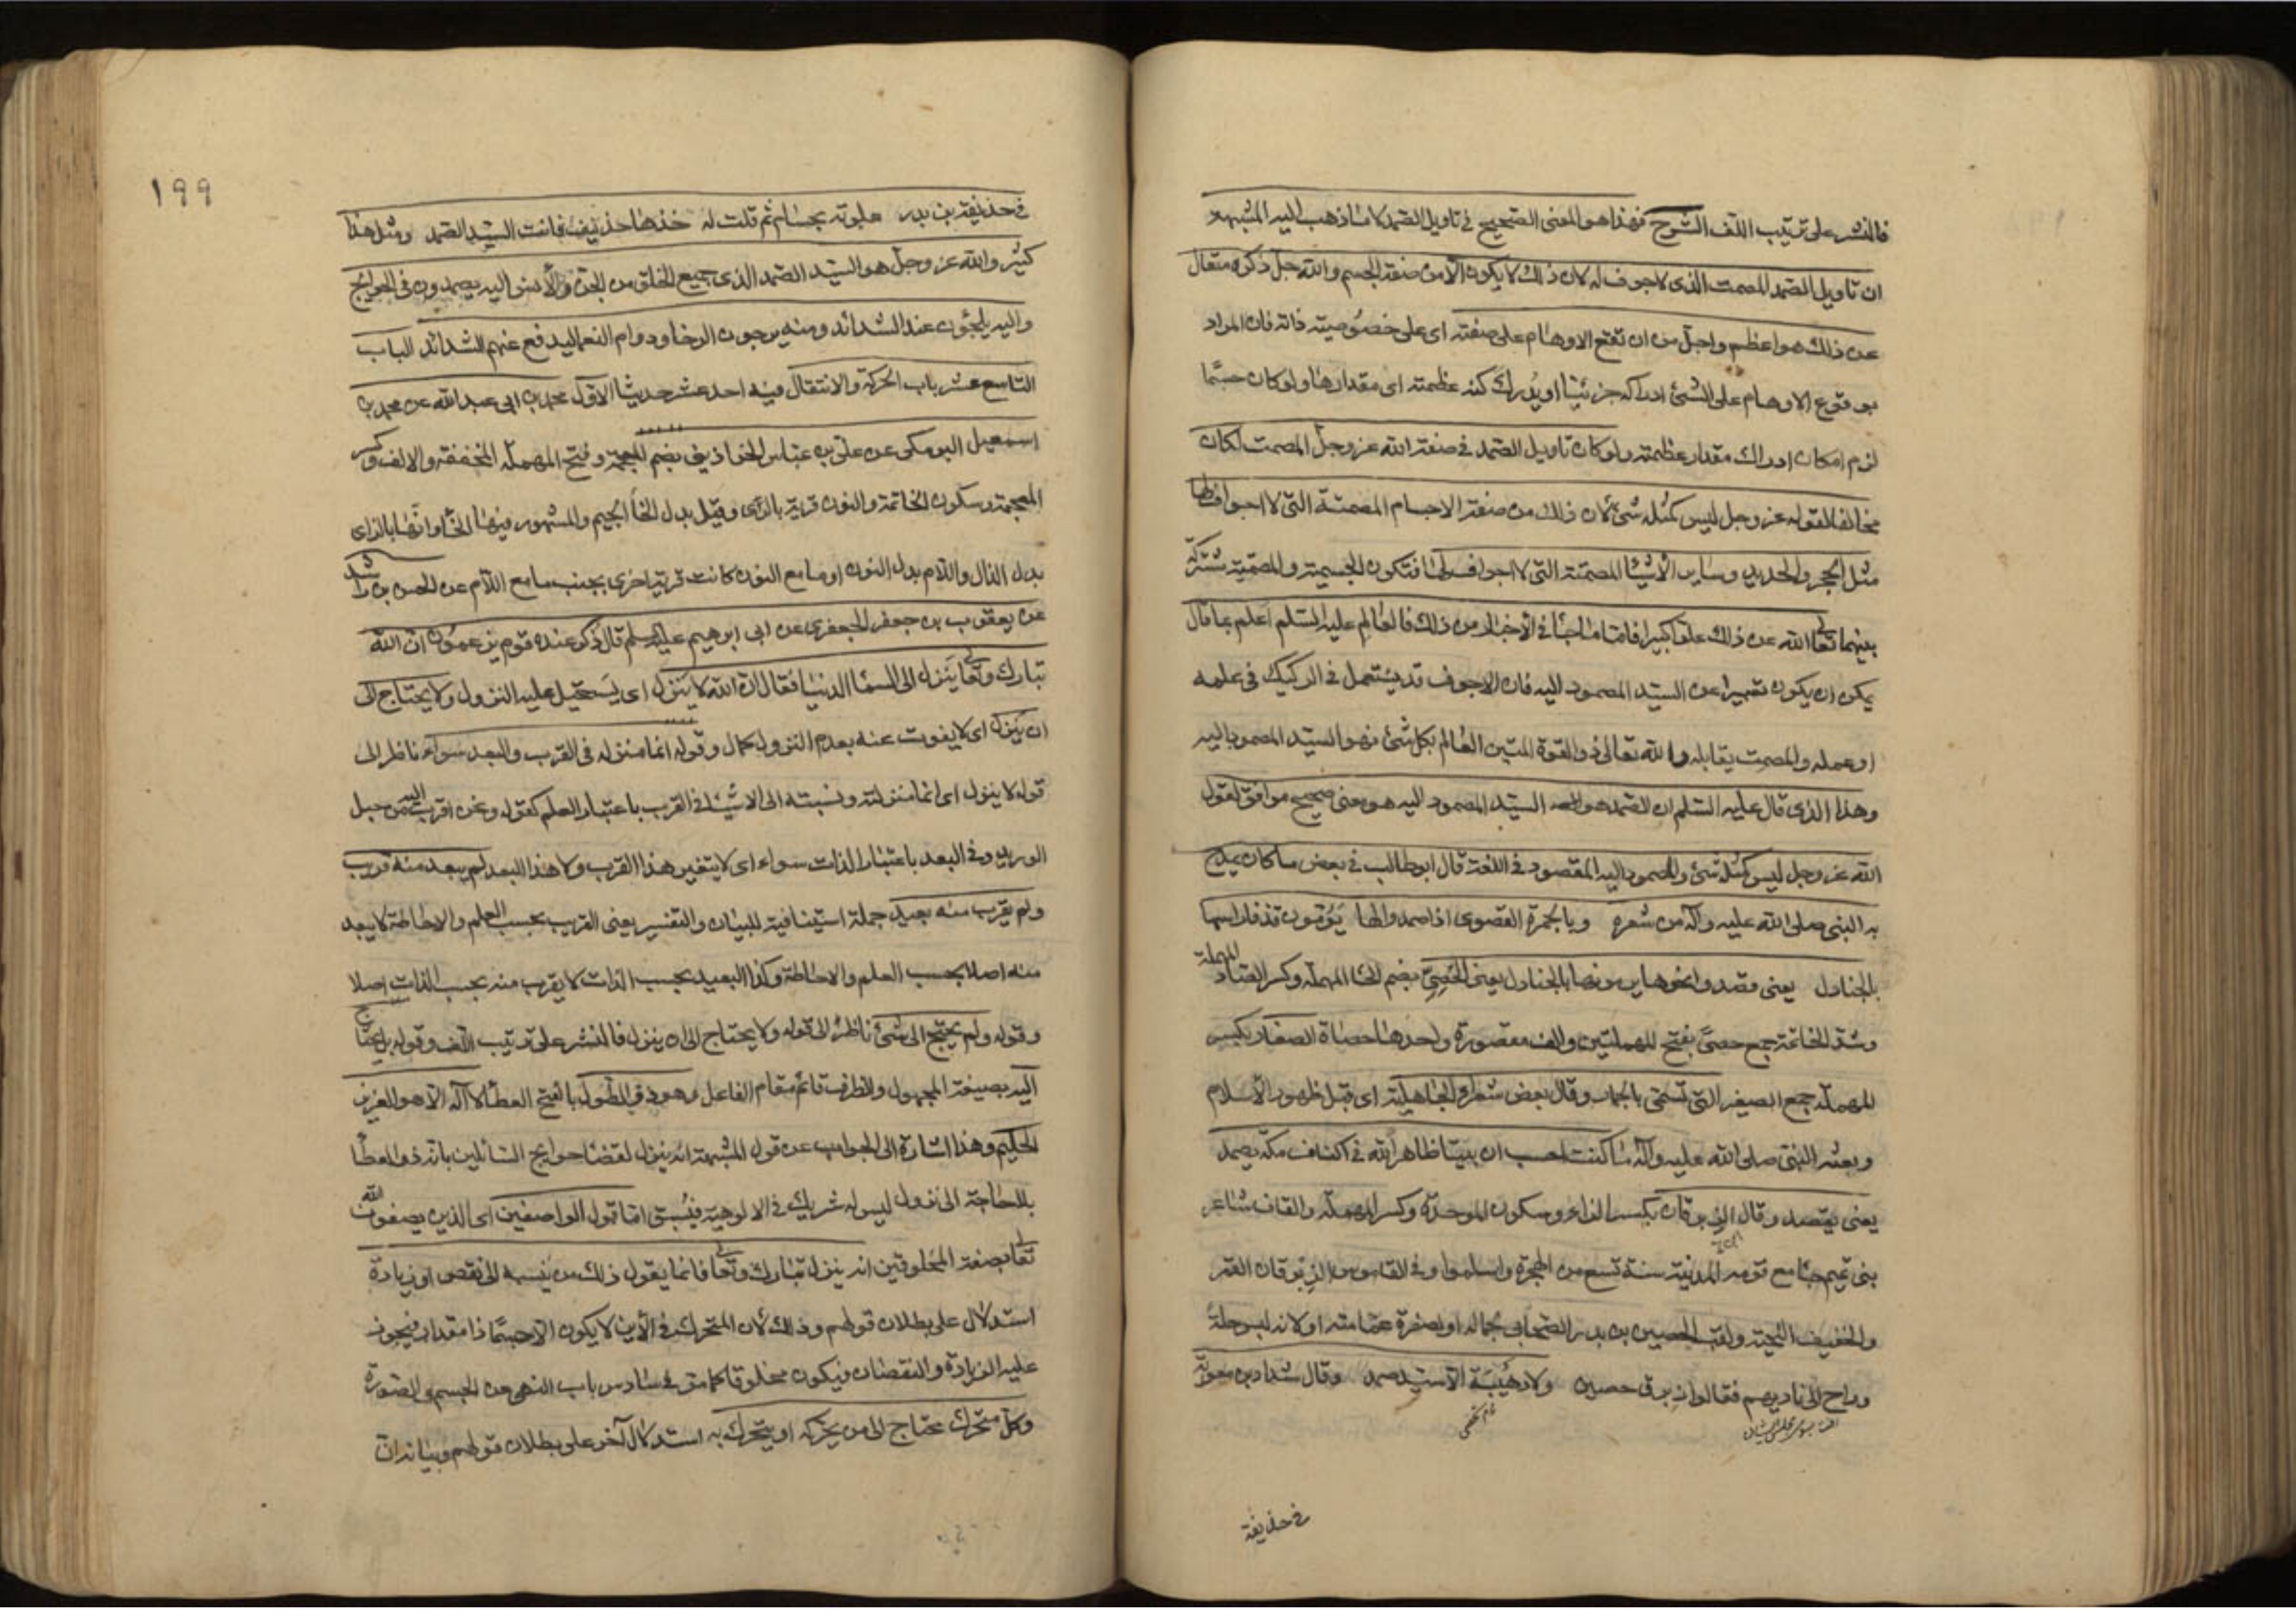 فالنشر على ترتيب اللف المشوح فهذا هو المعنى الصحيح في تاويل الصمد لا ما ذهب اليه المشبهة
ان تاويل الصمد المصمت الذى لا جوف له لان ذلك لا يكون الا من صفة الجسم والله جل ذكره متعال
عن ذلك هو اعظم واجل من ان تقع الاوهام على صفته اى على خصوصيته ذاته فان المراد
بوقوع الاوهام على الشئ ادراكه جزئيا او يدرك كنه عظمته اى مقدارها ولو كان جسما
لزم امكان ادراك مقدار عظمته ولو كان تاويل الصمد في صفة الله عز وجل المصمت لكان
مخالفا لقوله عز وجل ليس كمثله شئ لان ذلك من صفة الاجسام المصمتة التى لا اجواف لها
مثل الحجر والحديد وساير الاشيا المصمتة التى لا اجواف لها فتكون الجسمية والمصمتية مشتركة
بينهما تعالى الله عن ذلك علوا كبيرا فاما ما جا في الاخبار من ذلك فالعالم عليه السلم اعلم بما قال
يمكن ان يكون تعبيرا عن السيد المصمود اليه فان الاجوف قد يستعمل في الركيك في علمه
او عمله والمصمت يقابله والله تعالى ذو القوة المتين العالم بكل شئ فهو السيد المصمود اليه
وهذا الذى قال عليه السلم ان الصمد هو السيد المصمود اليه هو معنى صحيح موافق لقول
الله عز وجل ليس كمثله شئ والمصمود اليه المقصود في اللغة قال ابو طالب في بعض ما كان يمدح
به النبى صلى الله عليه وآله من شعره وبالجمرة القصوى اذا صمدوا لها يؤمون قذفا راسها
بالجنادل يعنى قصدوا نحوها يرمونها بالجنادل يعنى الحصى بضم الحا المهملة وكسر الصاد المهملة
وشد الخاتمة جمع حصى بفتح المهملتين والف مقصورة واحدها حصاة الصغار بكسر
المهملة جمع الصغير التى تسمى بالجمار وقال بعض شعراء الجاهلية اى قبل ظهور الاسلام
وبعثه النبى صلى الله عليه وآله ما كنت احسب ان بيتا ظاهرا لله في اكناف مكة يصمد
يعنى يقصد وقال الزبرقان بكسر الزاء وسكون الموحدة وكسر المهملة والقاف شاعر
بنى تميم جا مع قومه المدينة سنة تسع من الهجرة واسلموا وفي القاموس الزبرقان القمر
والخفيف اللحية ولقب الحصين بن بدر الصحابى لجماله او لصفرة عمامته او لانه لبس حلة
وراح الى ناديهم فقالوا زبرق حصين ولا رهيبة الا سيد صمد وقال شداد بن معوية
في حذيفة
199
في حذيفة بن بدر علوته بحسام ثم قلت له خذها حذيف فانت السيد الصمد ومثل هذا
كثير والله عز وجل هو السيد الصمد الذى جميع الخلق من الجن والانس اليه يصمدون في الحوائج
واليه يلجئون عند الشدائد ومنه يرجون الرخا ودوام النعما ليدفع عنهم الشدائد الباب
التاسع عشر باب الحركة والانتقال فيه احد عشر حديثا الاول محمد بن ابى عبد الله عن محمد بن
اسمعيل البرمكى عن على بن عباس الخراذينى بضم المعجمة وفتح المهملة المخففة والالف وكسر
المعجمة وسكون الخاتمة والنون قرية بالرى وقيل بدل الخا الجيم والمشهور فيها الخا وانها بالزاى
بدل الذال واللام بدل النون او ما مع النون كانت قرية اخرى بجنب ما مع اللام عن الحسن بن راشد
عن يعقوب بن جعفر الجعفرى عن ابى ابرهيم عليه السلم قال ذكر عنده قوم يزعمون ان الله
تبارك وتعالى ينزل الى السما الدنيا فقال ان الله لا ينزل اى يستحيل عليه النزول ولا يحتاج الى
ان ينزل اى لا يفوت عنه بعدم النزول كمال وقوله انما منزله في القرب والبعد سواء ناظر الى
قوله لا ينزل اى انما منزلته ونسبته الى الاشيا في القرب باعتبار العلم كقوله ونحن اقرب اليه من حبل
الوريد وفي البعد باعتبار الذات سواء اى لا يتغير هذا القرب ولا هذا البعد لم يبعد منه قريب
ولم يقرب منه بعيد جملة استينافية للبيان والتفسير يعنى القريب بحسب العلم والاحاطة لا يبعد
منه اصلا بحسب العلم والاحاطة وكذا البعيد بحسب الذات لا يقرب منه بحسب الذات اصلا
وقوله ولم يحتج الى شئ ناظر الى قوله ولا يحتاج الى ان ينزل فالنشر على ترتيب اللف وقوله بل يحتاج
اليه بصيغة المجهول والظرف قائم مقام الفاعل وهو ذو الطول بالفتح العطا لا اله الا هو العزيز
الحكيم وهذا اشارة الى الجواب عن قول المشبهة انه ينزل لقضا حوايج السائلين بانه ذو العطا
بلا حاجة الى نزول ليس له شريك في الالوهية فيسبق اما قول الواصفين اى الذين يصفون الله
تعالى بصفة المخلوقين انه ينزل تبارك وتعالى فانما يقول ذلك من ينسبه الى نقص او زيادة
استدلال على بطلان قولهم وذلك لان المتحرك في الاين لا يكون الا جسما ذا مقدار فيجوز
عليه الزيادة والنقصان فيكون مخلوقا كما مر في سادس باب النهى عن الجسم والصورة
وكل متحرك محتاج الى من يحركه او يتحرك به استدلال آخر على بطلان قولهم وبيانه ان